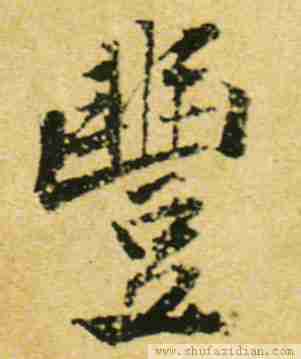 豐
www.shufazidian.com